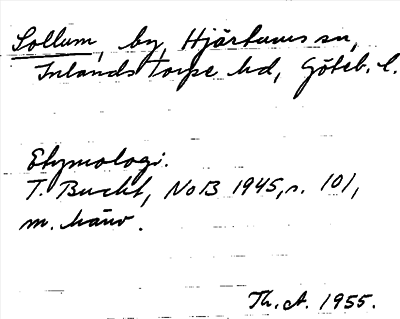 Sollum, by, Hjärtums sn,
Inlands Torpe hd, Göteb. l.
Etymologi.
T. Bucht, NoB 1945, s. 101,
m. hänv.
Th. A. 1955.